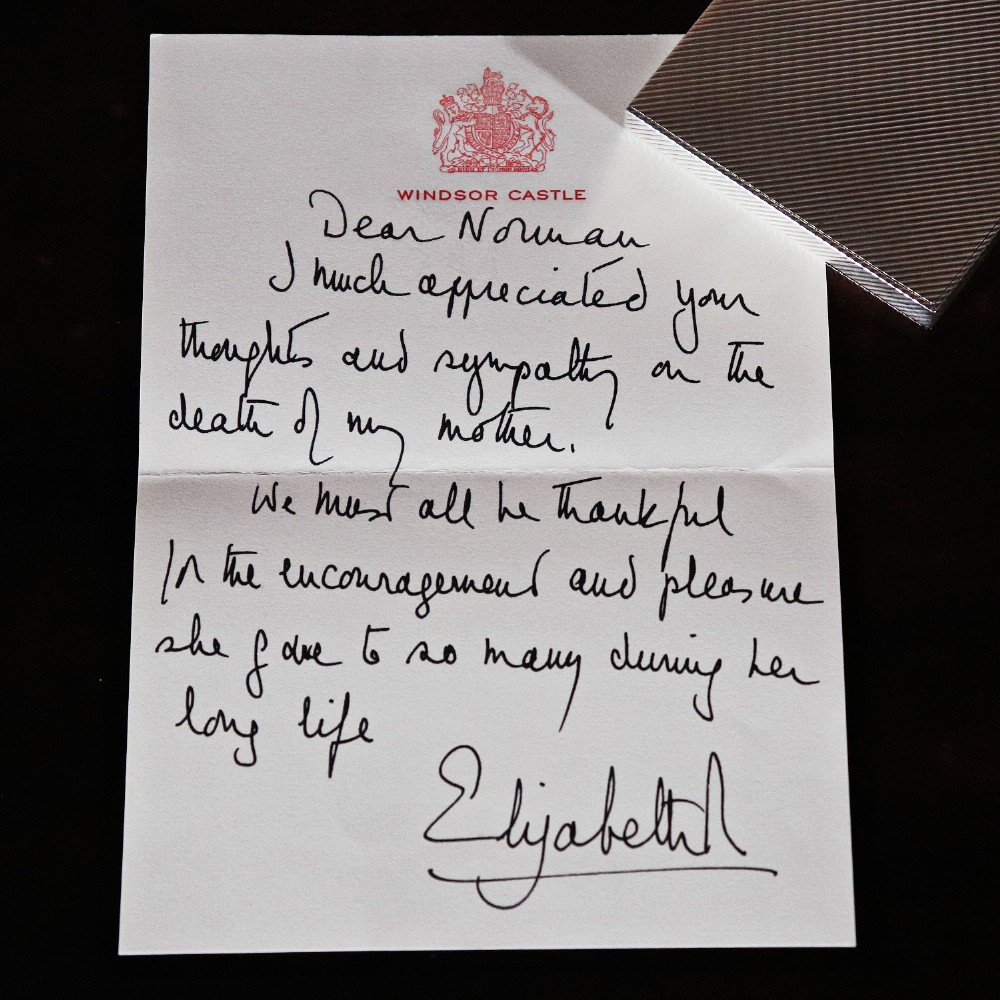 WINDSOR CASTLE
Dear Norman
I much appreciated your
thoughts and sympathy on the
death of my mother.
We must all be thankful
for the encouragement and pleasure
she gave to so many during her
long life
Elizabeth R